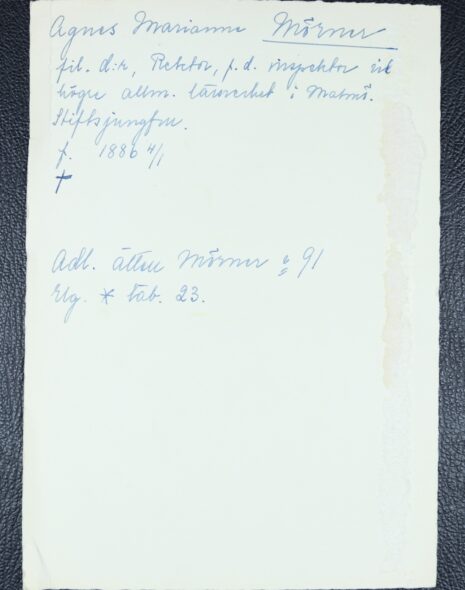 Agnes Marianne Mörner
fil. d:r, Rektor, f.d. inspektor vid
högre allm. läroverket i Malmö.
Stiftsjungfru.
f. 1886 4/1
†
Adl. ätten Mörner 91
Elg. * tab. 23.